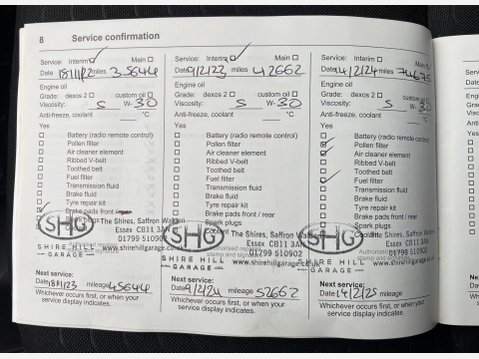 8 Service confirmation
Service: Interim Main
Date 18/11/22 miles 35644
Engine oil
Grade: dexos 2 custom oil
Viscosity: 5 W- 30
Anti-freeze, coolant °C
Yes
Battery (radio remote control)
Pollen filter
Air cleaner element
Ribbed V-belt
Toothed belt
Fuel filter
Transmission fluid
Brake fluid
Tyre repair kit
Brake pads front / rear
Spark plugs
The Shires, Saffron
Essex CB11 3AN
01799 510902
www.shirehillgarage.
SHG
SHIRE HILL
GARAGE
Next service:
Date mileage 45644
Whichever occurs first, or when your
service display indicates.
Service: Interim Main
Date 9/2/23 miles 42662
Engine oil
Grade: dexos 2 custom oil
Viscosity: 5 W- 30
Anti-freeze, coolant °C
Yes
Battery (radio remote control)
Pollen filter
Air cleaner element
Ribbed V-belt
Toothed belt
Fuel filter
Transmission fluid
Brake fluid
Tyre repair kit
Brake pads front / rear
Spark plugs
The Shires, Saffron
Essex CB11 3AN
01799 510902
www.shirehillgarage.
SHG
SHIRE HILL
GARAGE
Next service:
Date 9/2/24 mileage 52662
Whichever occurs first, or when your
service display indicates.
Service: Interim Main
Date 14/2/24 miles 74675
Engine oil
Grade: dexos 2 custom oil
Viscosity: 5 W- 30
Anti-freeze, coolant °C
Yes
Battery (radio remote control)
Pollen filter
Air cleaner element
Ribbed V-belt
Toothed belt
Fuel filter
Transmission fluid
Brake fluid
Tyre repair kit
Brake pads front / rear
Spark plugs
The Shires, Saffron
Essex CB11 3AN
01799 510902
www.shirehillgarage.
SHG
SHIRE HILL
GARAGE
Next service:
Date 14/2/25 mileage
Whichever occurs first, or when your
service display indicates.